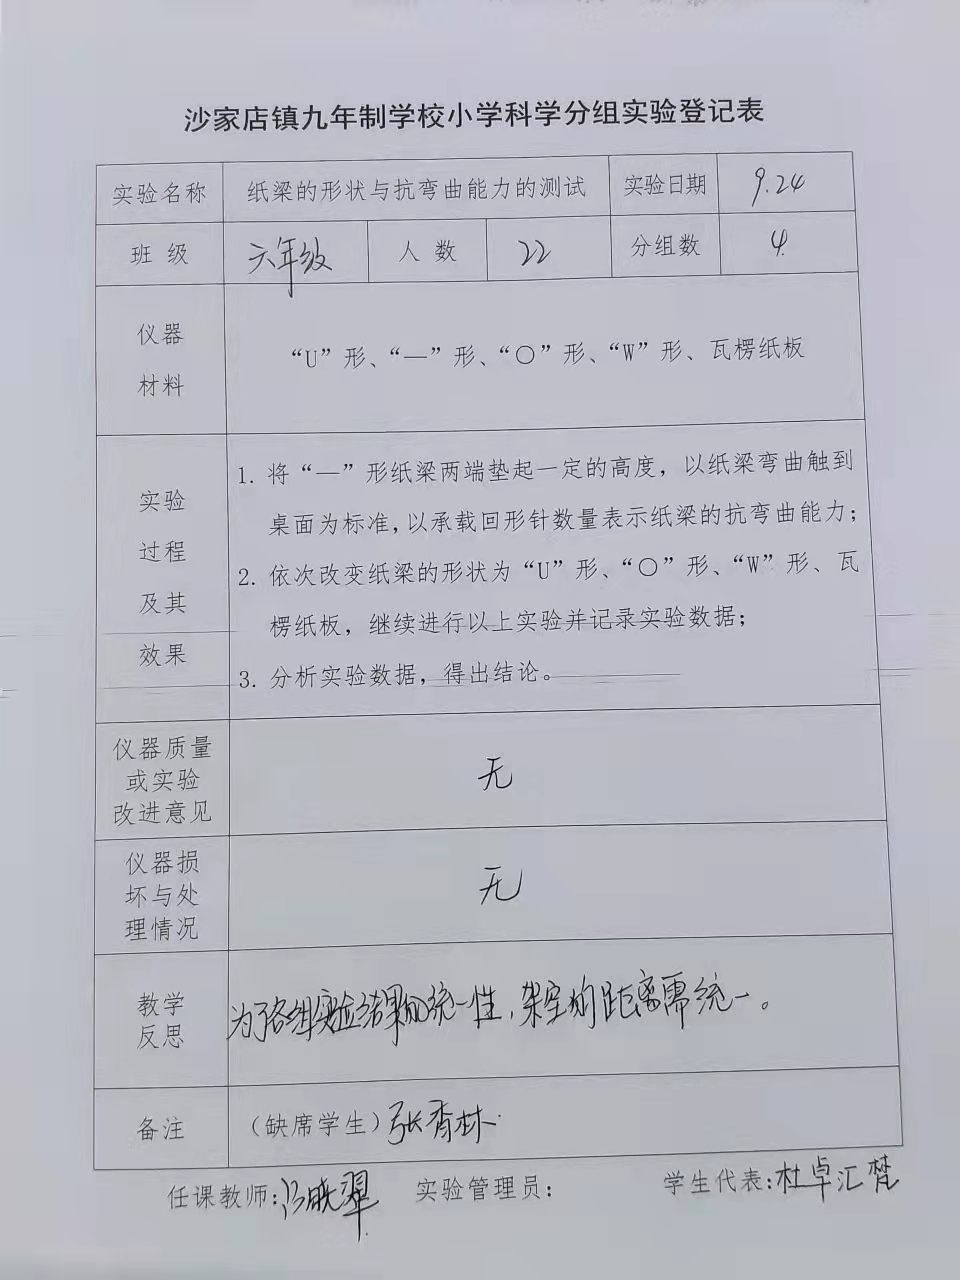 沙家店镇九年制学校小学科学分组实验登记表
实验名称 纸梁的形状与抗弯曲能力的测试 实验日期 9.24
班 级 六年级 人 数 22 分组数 4
仪器
材料
“U”形、“—”形、“〇”形、“W”形、瓦楞纸板
实验
过程
及其
效果
1. 将“—”形纸梁两端垫起一定的高度，以纸梁弯曲触到
桌面为标准，以承载回形针数量表示纸梁的抗弯曲能力；
2. 依次改变纸梁的形状为“U”形、“〇”形、“W”形、瓦
楞纸板，继续进行以上实验并记录实验数据；
3. 分析实验数据，得出结论。
仪器质量
或实验
改进意见
无
仪器损
坏与处
理情况
无
教学
反思
为了各组实验结果的统一性，架空的距离需统一。
备注 （缺席学生）张香林
任课教师：晓翠 实验管理员： 学生代表：杜卓汇梵